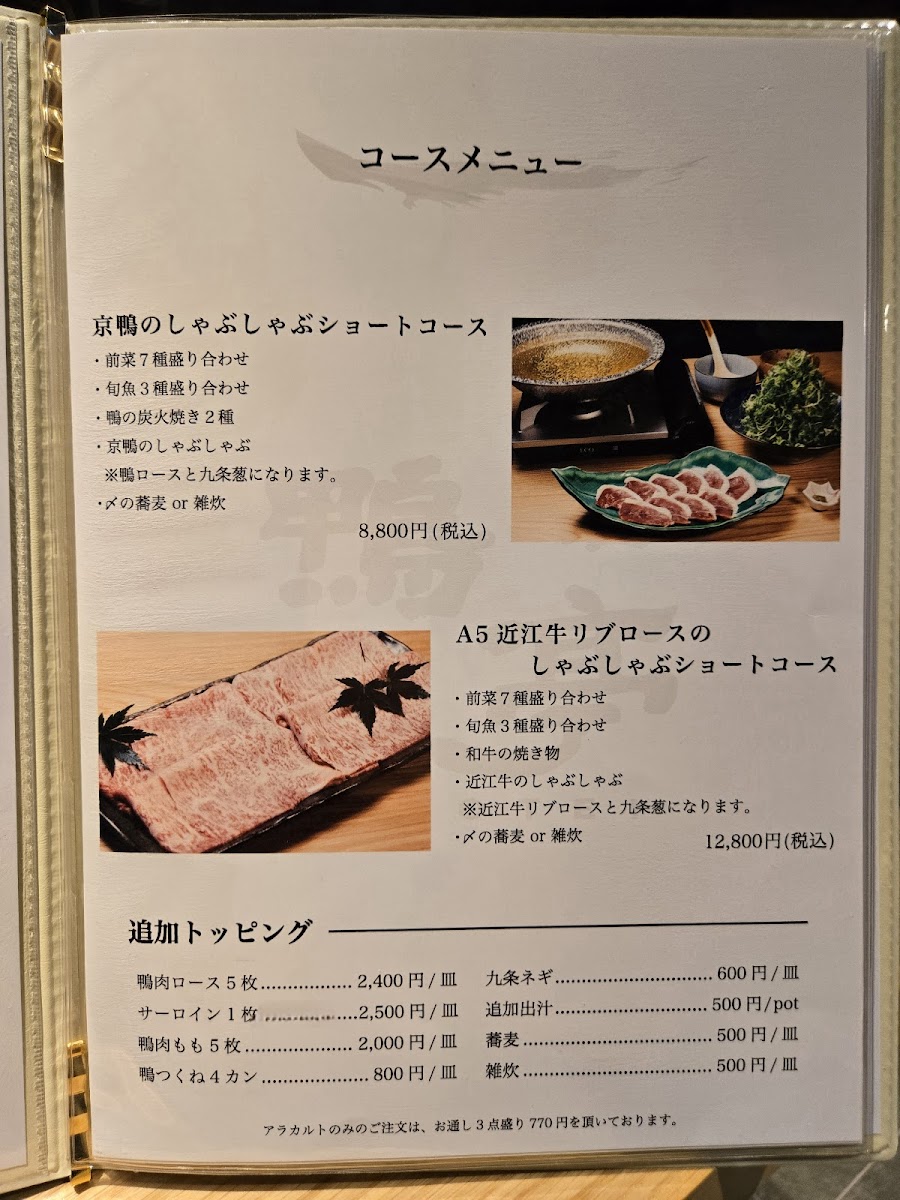 コースメニュー
京鴨のしゃぶしゃぶショートコース
・前菜７種盛り合わせ
・旬魚３種盛り合わせ
・鴨の炭火焼き２種
・京鴨のしゃぶしゃぶ
※鴨ロースと九条葱になります。
・〆の蕎麦 or 雑炊
8,800円(税込)
A5 近江牛リブロースの
しゃぶしゃぶショートコース
・前菜７種盛り合わせ
・旬魚３種盛り合わせ
・和牛の焼き物
・近江牛のしゃぶしゃぶ
※近江牛リブロースと九条葱になります。
・〆の蕎麦 or 雑炊
12,800円(税込)
追加トッピング
鴨肉ロース５枚.................. 2,400 円 / 皿
サーロイン１枚..................2,500 円 / 皿
鴨肉もも５枚..................... 2,000 円 / 皿
鴨つくね４カン..................... 800 円 / 皿
九条ネギ............................... 600 円 / 皿
追加出汁............................... 500 円/pot
蕎麦..................................... 500 円 / 皿
雑炊..................................... 500 円 / 皿
アラカルトのみのご注文は、お通し３点盛り 770 円を頂いております。
鴨
亭